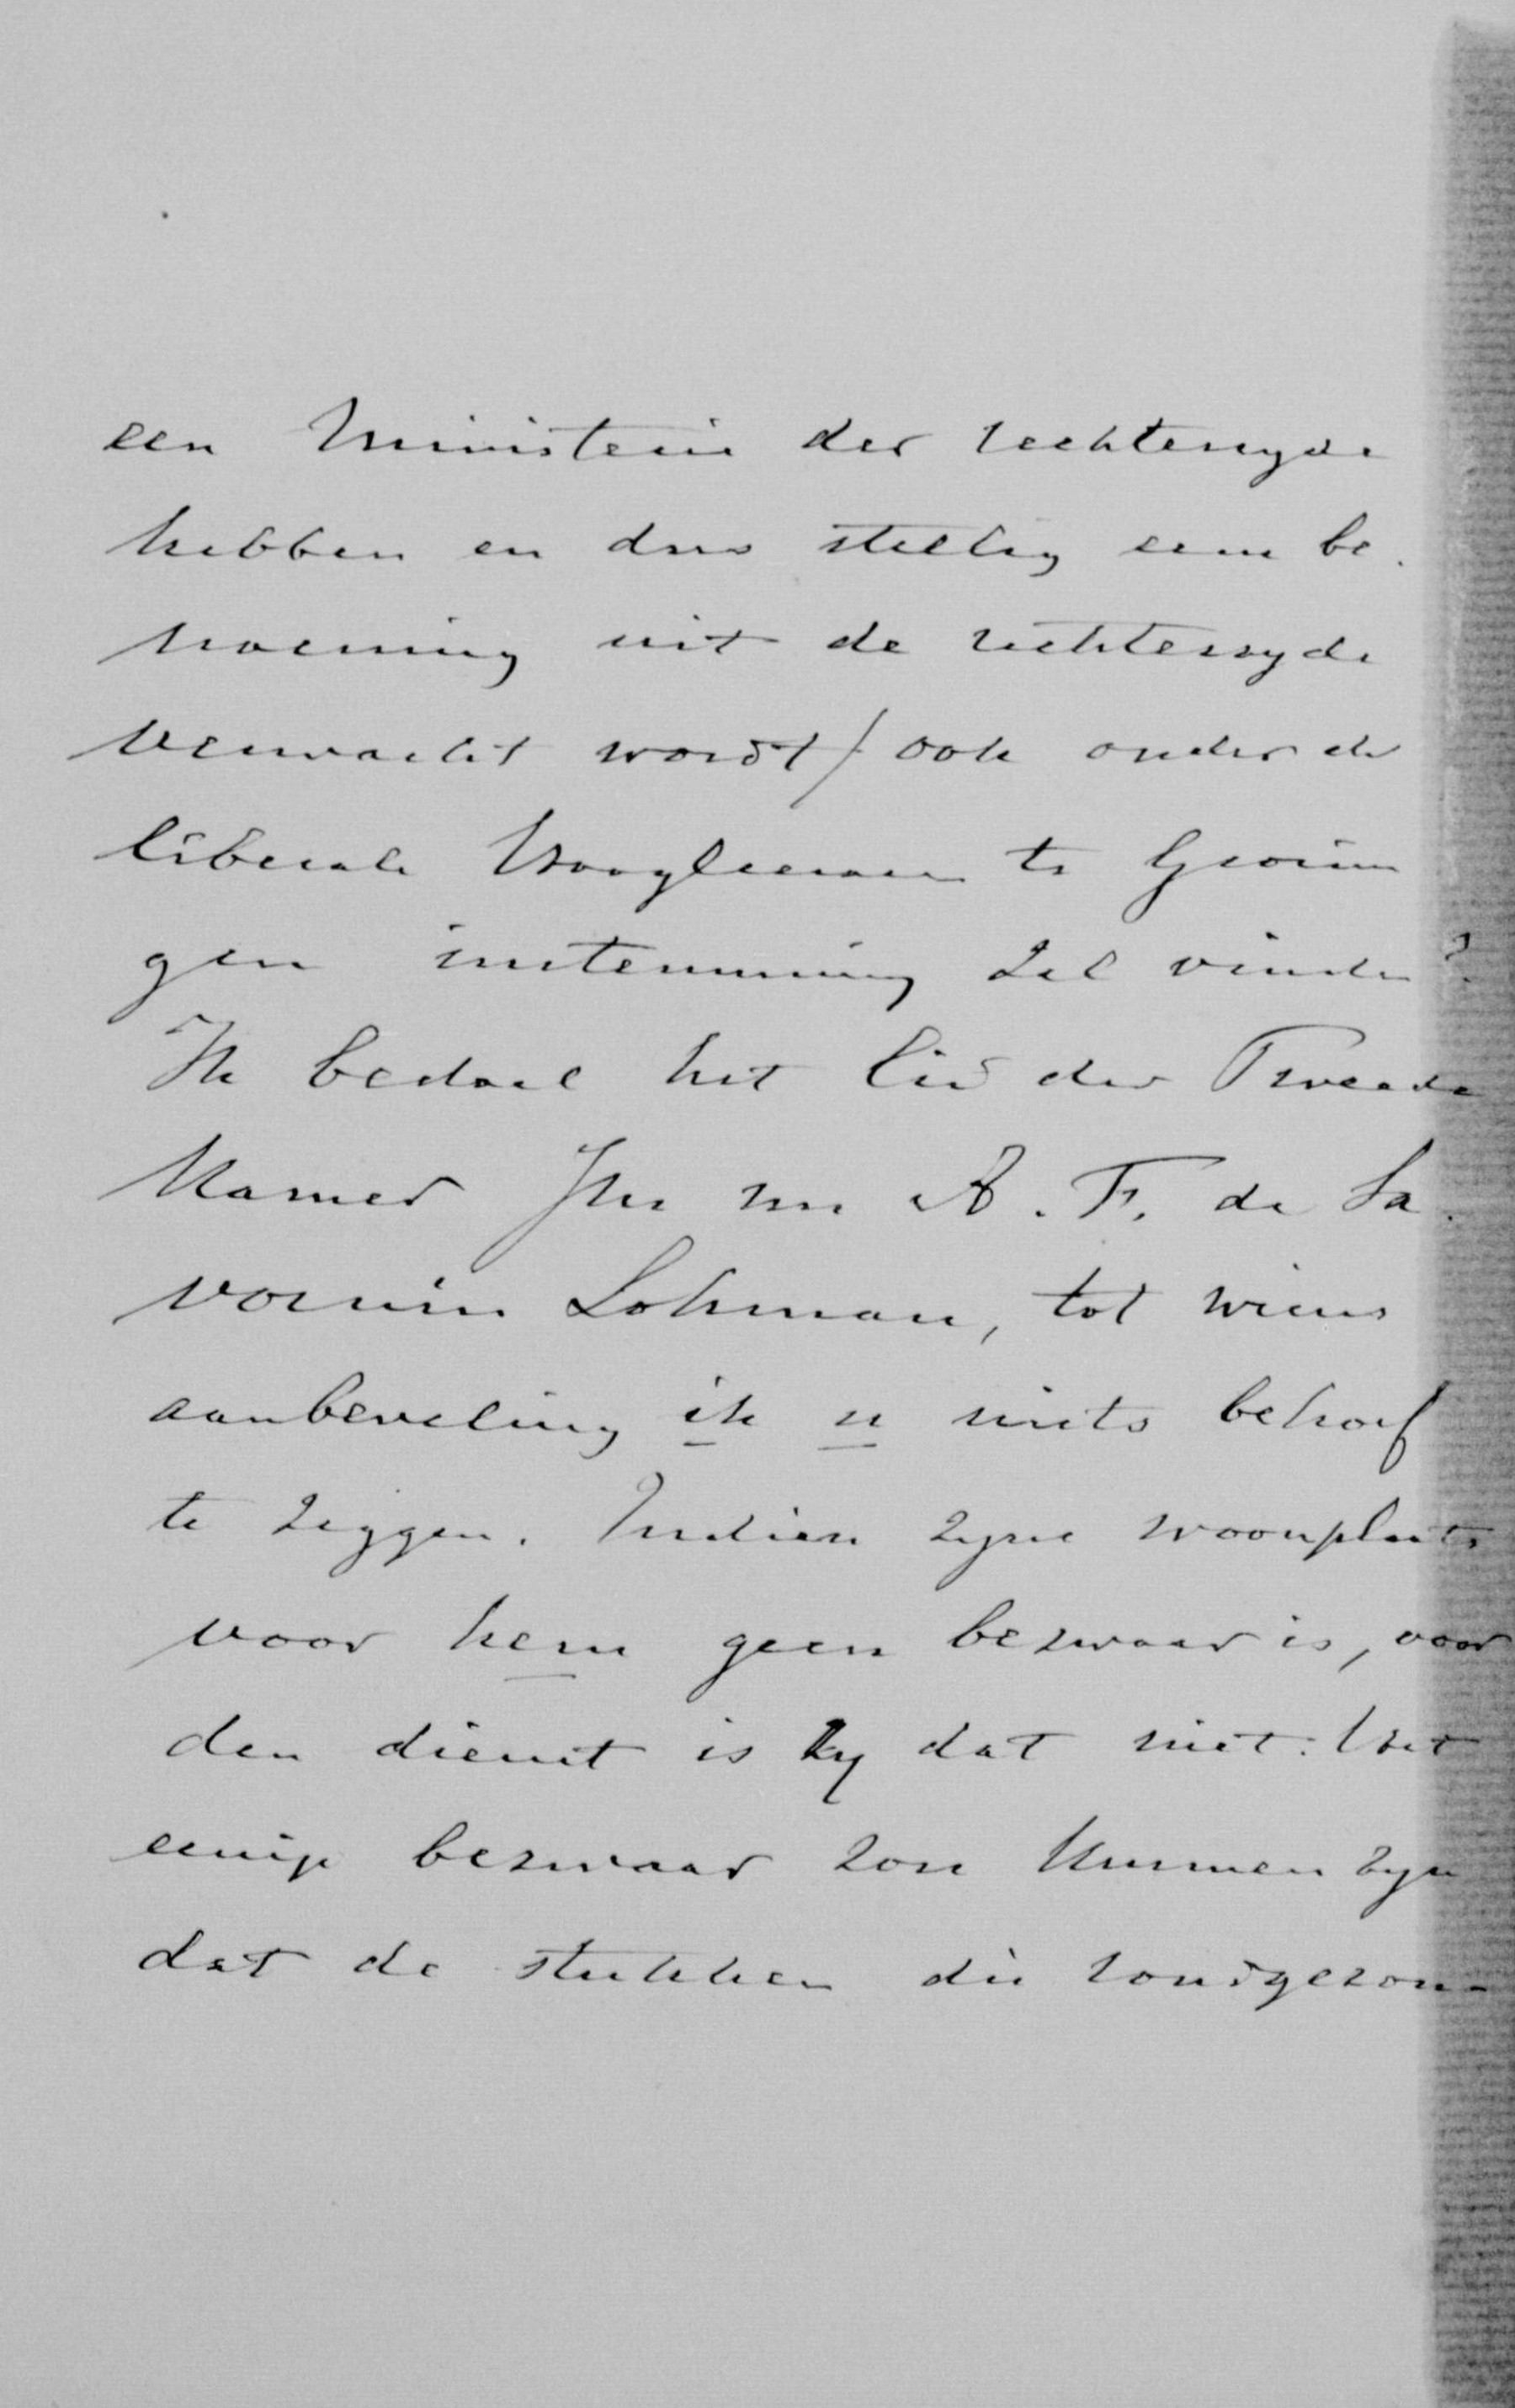 een Ministerie der rechterzyde
hebben en dus stellig eene be-
noeming uit de rechterzyde
verwacht wordt/ ook onder de
liberale Hoogleeraren te Gronin
gen instemming zal vinden?
Ik bedoel het lid der Tweede
Kamer Jhr mr A. F. de Sa-
vornin Lohman, tot wiens
aanbeveling ik u niets behoef
te zeggen. Indien zyne woonplaats
voor hem geen bezwaar is, voor
den dienst is zy dat niet. Het
eenige bezwaar zou kunnen zyn
dat de stukken die rondgezon-